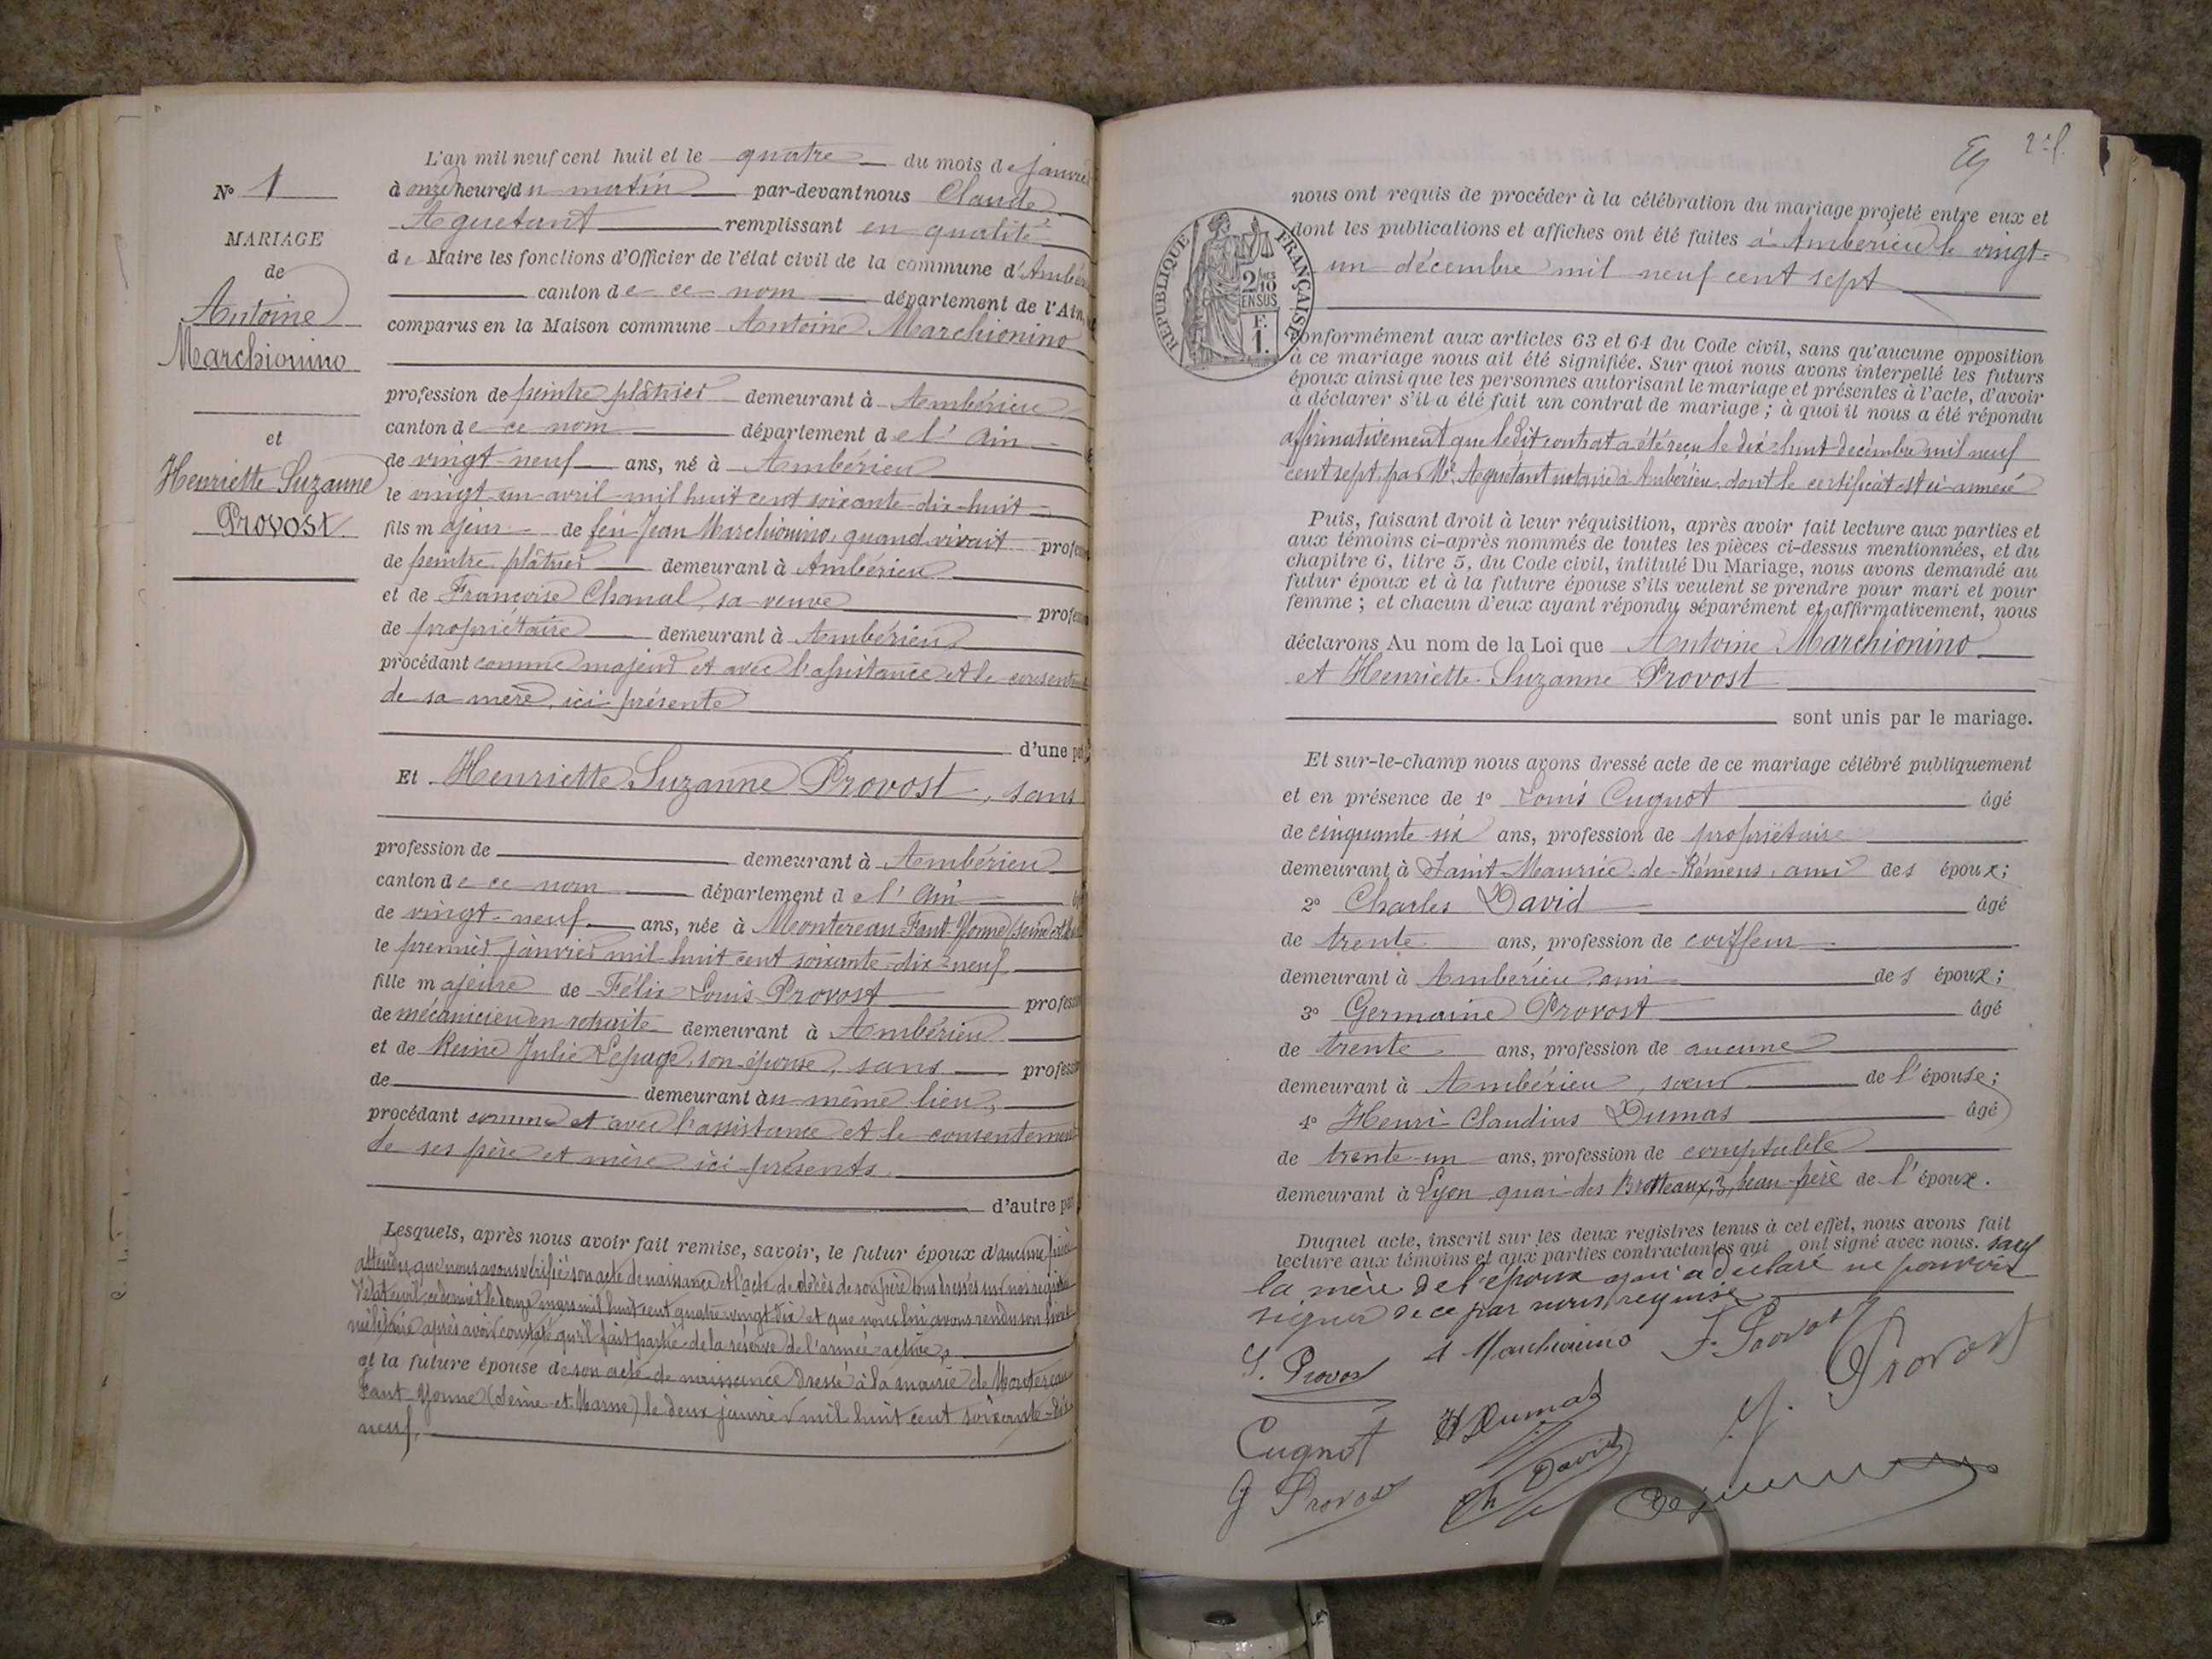 N° 1
MARIAGE
de
Antoine
Marchionino
et
Henriette Suzanne
Provost
L'an mil neuf cent huit et le quatre du mois de janvier
à onze heures du matin par-devant nous Claude
Aguetant remplissant en qualité
de Maire les fonctions d'Officier de l'état civil de la commune d'Ambér
canton de ce nom département de l'Ain,
comparus en la Maison commune Antoine Marchionino
profession de peintre plâtrier demeurant à Ambérieu
canton de ce nom département de l'Ain
de vingt-neuf ans, né à Ambérieu
le vingt un avril mil huit cent soixante-dix-huit
fils majeur de feu Jean Marchionino, quand vivait profes
de peintre plâtrier demeurant à Ambérieu
et de Françoise Chanal, sa veuve profes
de propriétaire demeurant à Ambérieu
procédant comme majeur et avec l'assistance et le consent
de sa mère, ici présente
d'une pa
Et Henriette Suzanne Provost, sans
profession de demeurant à Ambérieu
canton de ce nom département de l'Ain
de vingt-neuf ans, née à Montereau Faut Yonne (Seine et
le premier janvier mil huit cent soixante-dix-neuf
fille majeure de Félix Louis Provost profess
de mécanicien en retraite demeurant à Ambérieu
et de Reine Julie Lepage, son épouse, sans profess
de demeurant au même lieu,
procédant comme et avec l'assistance et le consentement
de ses père et mère ici présents.
d'autre par
Lesquels, après nous avoir fait remise, savoir, le futur époux d'aucune pièce
attendu que nous avons vérifié son acte de naissance et l'acte de décès de son père tous dressés sur nos registres
d'état civil, ce dernier le douze mars mil huit cent quatre vingt dix et que nous lui avons rendu son livret
militaire après avoir constaté qu'il fait partie de la réserve de l'armée active,
et la future épouse de son acte de naissance dressé à la mairie de Montereau
Faut-Yonne (Seine-et-Marne) le deux janvier mil huit cent soixante-dix
neuf.
2 f.
RÉPUBLIQUE FRANÇAISE
2/10 EN SUS
F. 1.
nous ont requis de procéder à la célébration du mariage projeté entre eux et
dont les publications et affiches ont été faites à Ambérieu le vingt-
un décembre mil neuf cent sept
conformément aux articles 63 et 64 du Code civil, sans qu'aucune opposition
à ce mariage nous ait été signifiée. Sur quoi nous avons interpellé les futurs
époux ainsi que les personnes autorisant le mariage et présentes à l'acte, d'avoir
à déclarer s'il a été fait un contrat de mariage ; à quoi il nous a été répondu
affirmativement que ledit contrat a été reçu le dix-huit décembre mil neuf
cent sept, par Me Aguétant notaire à Ambérieu, dont le certificat est ci-annexé
Puis, faisant droit à leur réquisition, après avoir fait lecture aux parties et
aux témoins ci-après nommés de toutes les pièces ci-dessus mentionnées, et du
chapitre 6, titre 5, du Code civil, intitulé Du Mariage, nous avons demandé au
futur époux et à la future épouse s'ils veulent se prendre pour mari et pour
femme ; et chacun d'eux ayant répondu séparément et affirmativement, nous
déclarons Au nom de la Loi que Antoine Marchionino
et Henriette Suzanne Provost
sont unis par le mariage.
Et sur-le-champ nous avons dressé acte de ce mariage célébré publiquement
et en présence de 1° Louis Cugnot âgé
de cinquante-six ans, profession de propriétaire
demeurant à Saint-Maurice-de-Rémens, ami des époux;
2° Charles David âgé
de trente ans, profession de coiffeur
demeurant à Ambérieu, ami des époux;
3° Germaine Provost âgé
de trente ans, profession de aucune
demeurant à Ambérieu, sœur de l'épouse;
4° Henri Claudius Dumas âgé
de trente-un ans, profession de comptable
demeurant à Lyon quai des Brotteaux, 3, beau-frère de l'époux.
Duquel acte, inscrit sur les deux registres tenus à cet effet, nous avons fait
lecture aux témoins et aux parties contractantes qui ont signé avec nous. sauf
la mère de l'époux qui a déclaré ne pouvoir
signer de ce par nous requise
S. Provost A Marchionino F. Provost
Provost
Cugnot H Dumas
G Provost Ch David